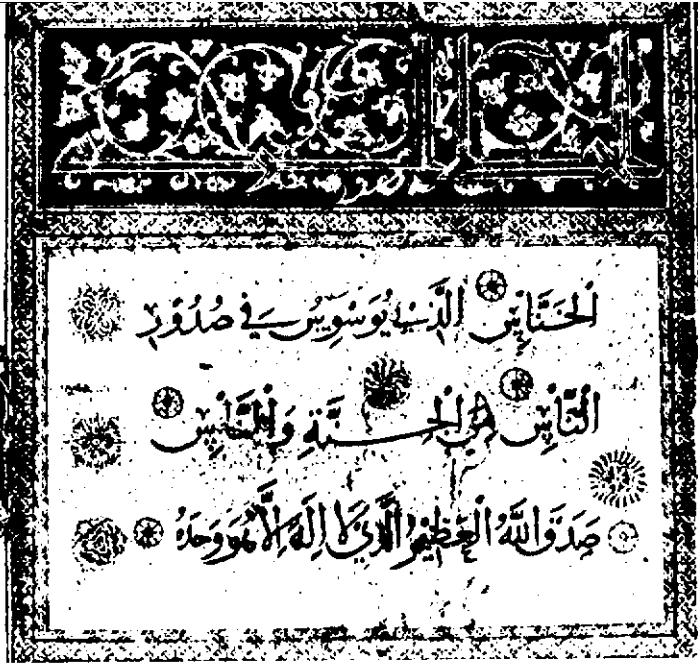 الْخَنَّاسِ الَّذِي يُوَسْوِسُ فِي صُدُوْرِ
النَّاسِ مِنَ الْجِنَّةِ وَالنَّاسِ
صَدَقَ اللَّهُ الْعَظِيْمُ الَّذِيْ لَا إِلٰهَ إِلَّا هُوَ وَحْدَهُ